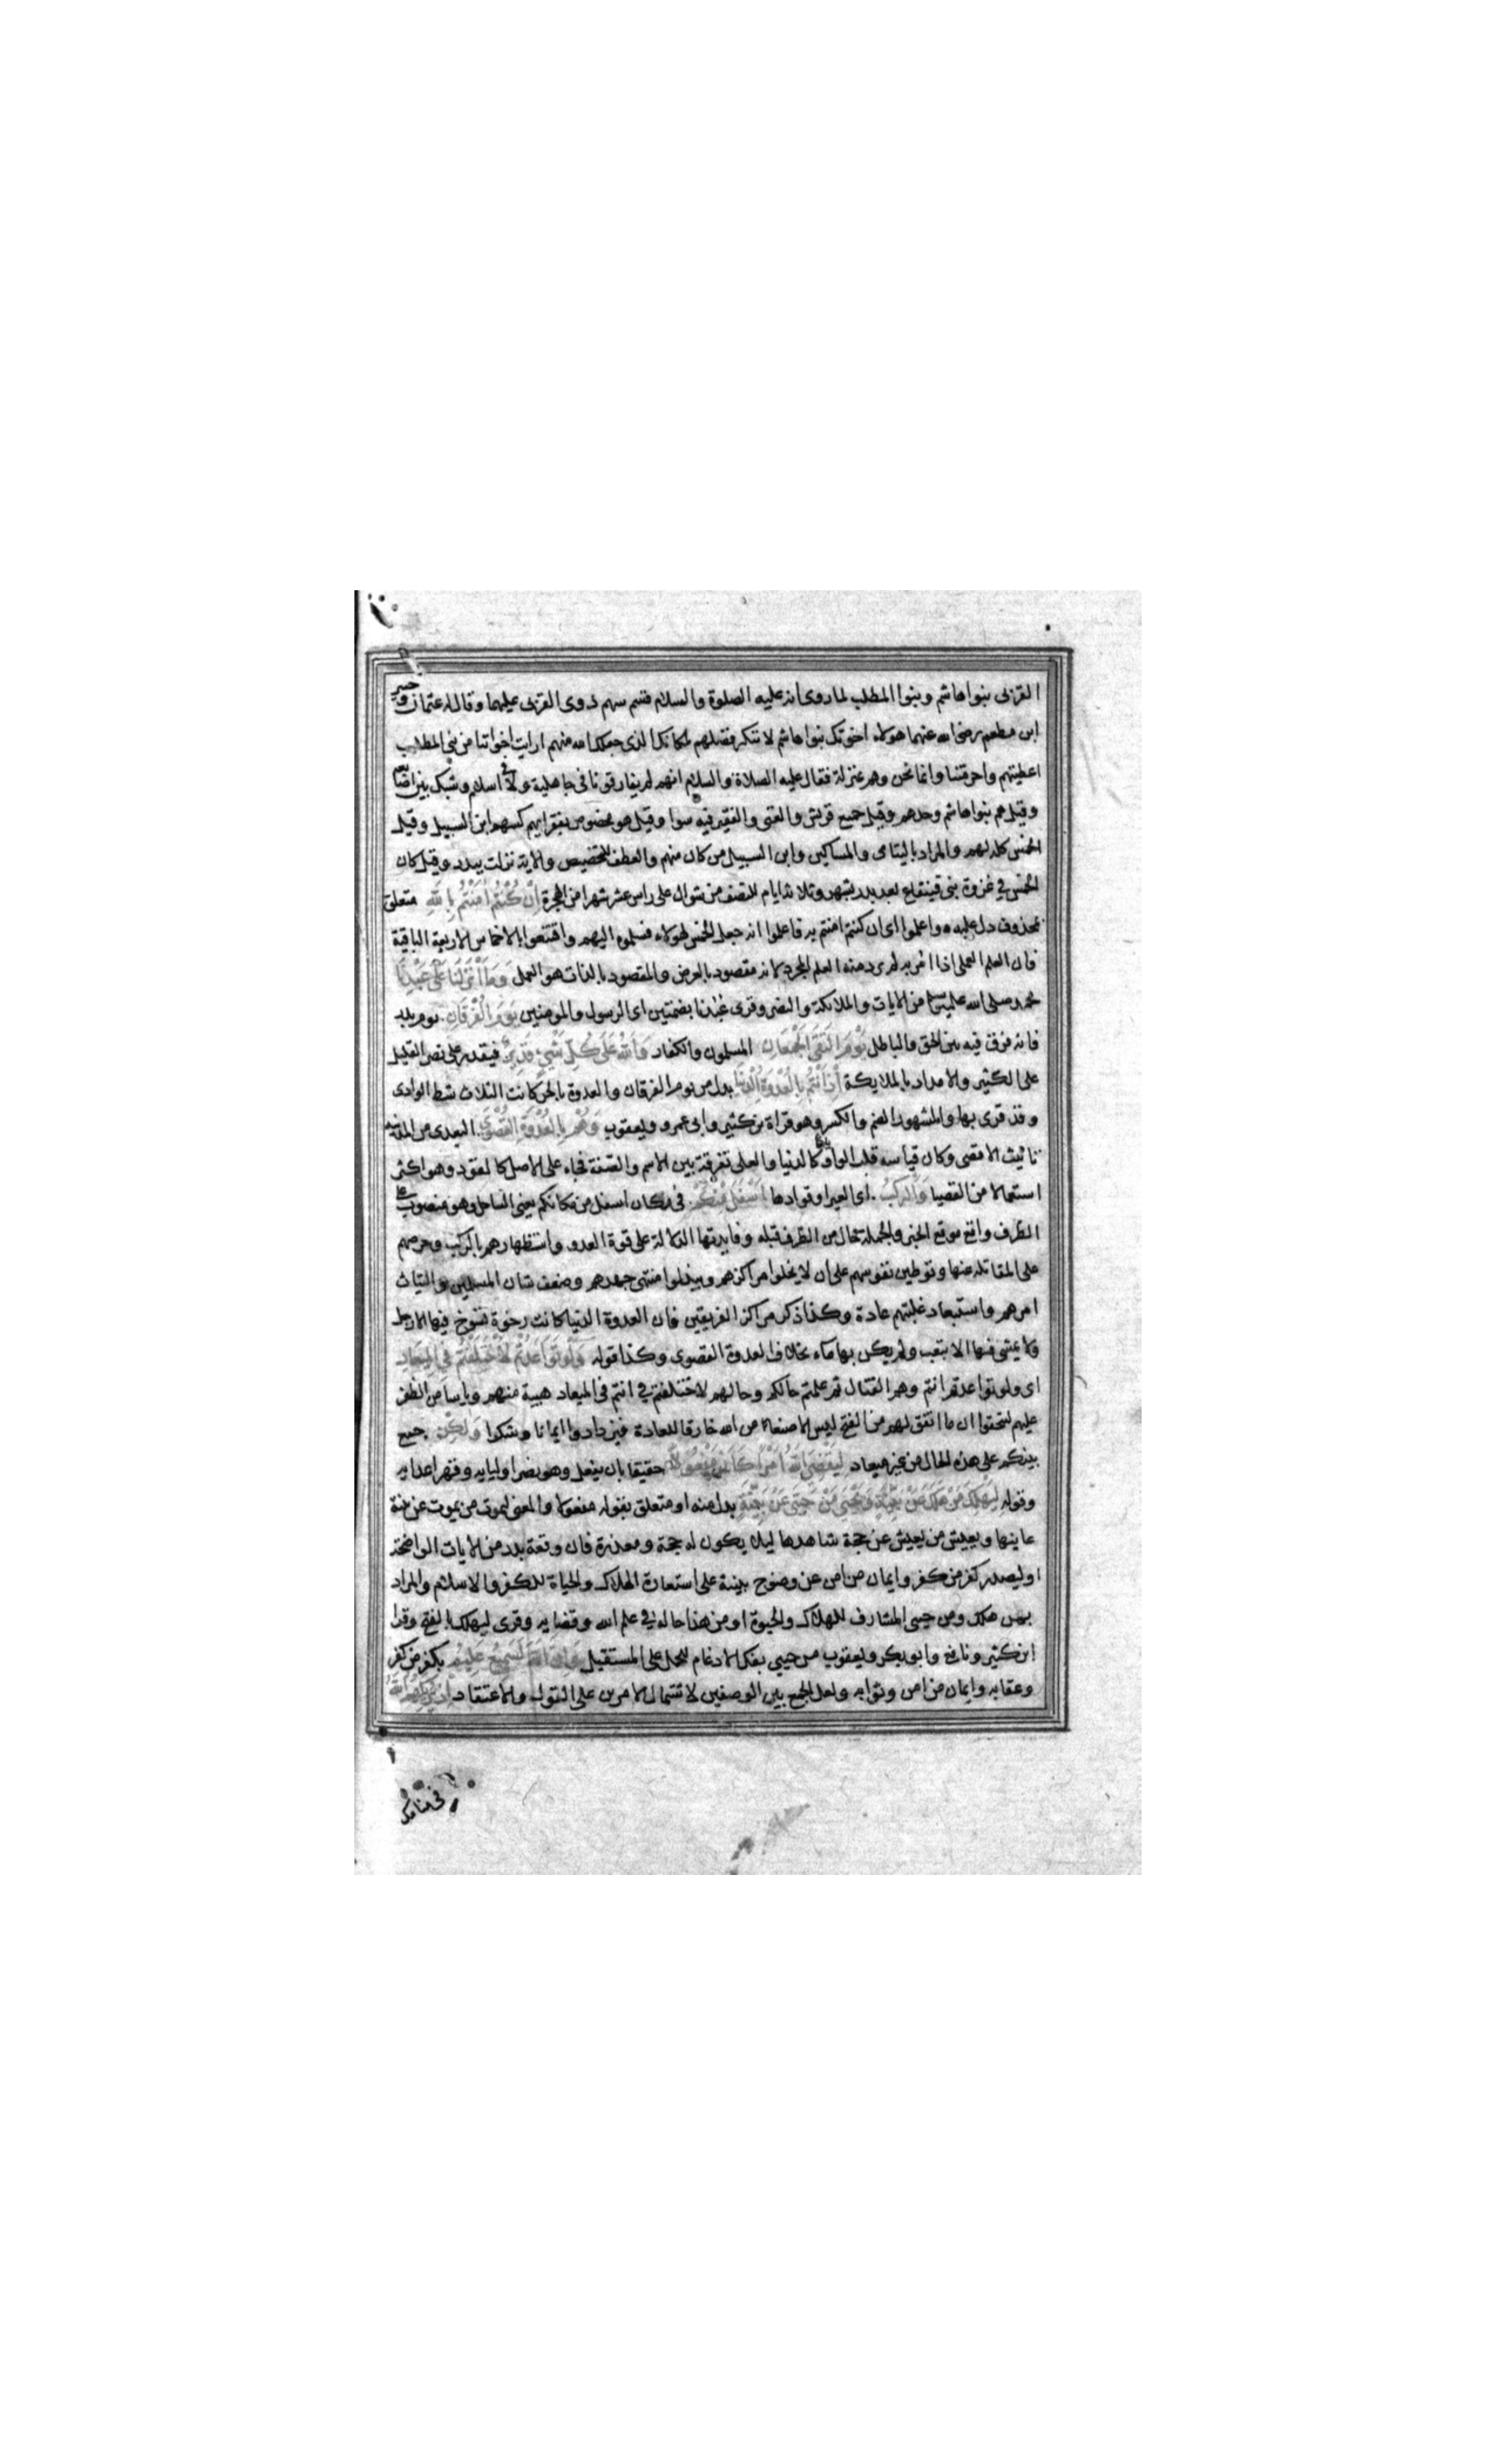 القربى بنوا هاشم وبنوا المطلب لما روى انه عليه الصلوة والسلام قسم سهم ذوى القربى عليهما وقال له عثمان وجبير
ابن مطعم رضى الله عنهما هولاء اخوتك بنوا هاشم لا ننكر فضلهم لمكانك الذى جعلك الله منهم ارايت اخواننا من بنى المطلب
اعطيتهم واحرمتنا وانما نحن وهم بمنزلة فقال عليه الصلاة والسلام انهم لم يفارقونا فى جاهلية ولا فى اسلام وشبك بين اصابعه
وقيل هم بنوا هاشم وحدهم وقيل جميع قريش والغنى والفقير فيه سوا وقيل هو مخصوص بفقرايهم كسهم ابن السبيل وقيل
الخمس كله لهم والمراد باليتامى والمساكين وابن السبيل من كان منهم والعطف للتخصيص والاية نزلت ببدر وقيل كان
الخمس في غزوة بنى قينقاع بعد بدر بشهر وثلاثة ايام للنصف من شوال على راس عشر شهرا من الهجرة اِنْ كُنْتُمْ اٰمَنْتُمْ بِاللّٰهِ متعلق
بمحذوف دل عليه واعلموا اى ان كنتم امنتم به فاعلموا انه جعل الخمس لهولاء فسلموه اليهم واقتنعوا بالاخماس الاربعة الباقية
فان العلم العملى اذا امر به لم يرد منه العلم المجرد لانه مقصود بالعرض والمقصود بالذات هو العمل وَمَا اَنْزَلْنَا عَلٰى عَبْدِنَا
محمد صلى الله عليه وسلم من الايات والملائكة والنصر وقرى عُبُدنا بضمتين اى الرسول والمومنين يَوْمَ الْفُرْقَانِ يوم بدر
فانه فرق فيه بين الحق والباطل يَوْمَ الْتَقَى الْجَمْعَانِ المسلمون والكفار وَاللّٰهُ عَلٰى كُلِّ شَيْءٍ قَدِيرٌ فيقدر على نصر القليل
على الكثير والامداد بالملايكة اِذْ اَنْتُمْ بِالْعُدْوَةِ الدُّنْيَا بدل من يوم الفرقان والعدوة بالحركات الثلاث شط الوادى
وقد قرى بها والمشهور الضم والكسر وهو قراة بن كثير وابى عمرو ويعقوب وَهُمْ بِالْعُدْوَةِ الْقُصْوٰى البعدى من المدينة
تانيث الاقصى وكان قياسه قلب الواو ياء كالدنيا والعلى تفرقة بين الاسم والصفة فجاء على الاصل كالقود وهو اكثر
استعمالا من القصيا وَالرَّكْبُ اى العير او قوادها اَسْفَلَ مِنْكُمْ فى مكان اسفل من مكانكم يعنى الساحل وهو منصوب على
الظرف واقع موقع الخبر والجملة حال من الظرف قبله وفايدتها الدلالة على قوة العدو واستظهارهم بالركب وحرصهم
على المقاتلة عنها وتوطين نفوسهم على ان لا يخلوا مراكزهم ويبذلوا منتهى جهدهم وضعف شان المسلمين والتياث
امرهم واستبعاد غلبتهم عادة وكذا ذكر مراكز الفريقين فان العدوة الدنيا كانت رخوة تسوخ فيها الارجل
ولا يمشى فيها الا بتعب ولم يكن بها ماء بخلاف العدوة القصوى وكذا قوله وَلَوْ تَوَاعَدْتُمْ لَاخْتَلَفْتُمْ فِي الْمِيعَادِ
اى ولو تواعدتم انتم وهم القتال ثم علمتم حالكم وحالهم لاختلفتم انتم فى الميعاد هيبة منهم وياسا من الظفر
عليهم لتحققوا ان ما اتفق لهم من الفتح ليس الا صنعا من الله خارقا للعادة فيزدادوا ايمانا وشكرا وَلٰكِنْ جمع
بينكم على هذه الحال من غير ميعاد لِيَقْضِيَ اللّٰهُ اَمْرًا كَانَ مَفْعُولًا حقيقا بان يفعل وهو نصر اوليايه وقهر اعدايه
وقوله لِيَهْلِكَ مَنْ هَلَكَ عَنْ بَيِّنَةٍ وَيَحْيٰى مَنْ حَيَّ عَنْ بَيِّنَةٍ بدل منه او متعلق بقوله مفعولا والمعنى ليموت من يموت عن بينة
عاينها ويعيش من يعيش عن حجة شاهدها ليلا يكون له حجة ومعذرة فان وقعة بدر من الايات الواضحة
اوليصدر كفر من كفر وايمان من امن عن وضوح بينة على استعارة الهلاك والحياة للكفر والاسلام والمراد
بمن هلك ومن حيى المشارف للهلاك والحيوة او من هذا حاله فى علم الله وقضايه وقرى ليهلك بالفتح وقرا
ابن كثير ونافع وابو بكر ويعقوب من حيى بفك الادغام للحمل على المستقبل وَاِنَّ اللّٰهَ لَسَمِيعٌ عَلِيمٌ بكفر من كفر
وعقابه وايمان من امن وثوابه ولعل الجمع بين الوصفين لاشتمال الامرين على القول والاعتقاد اِذْ يُرِيكَهُمُ اللّٰهُ
فى منامك